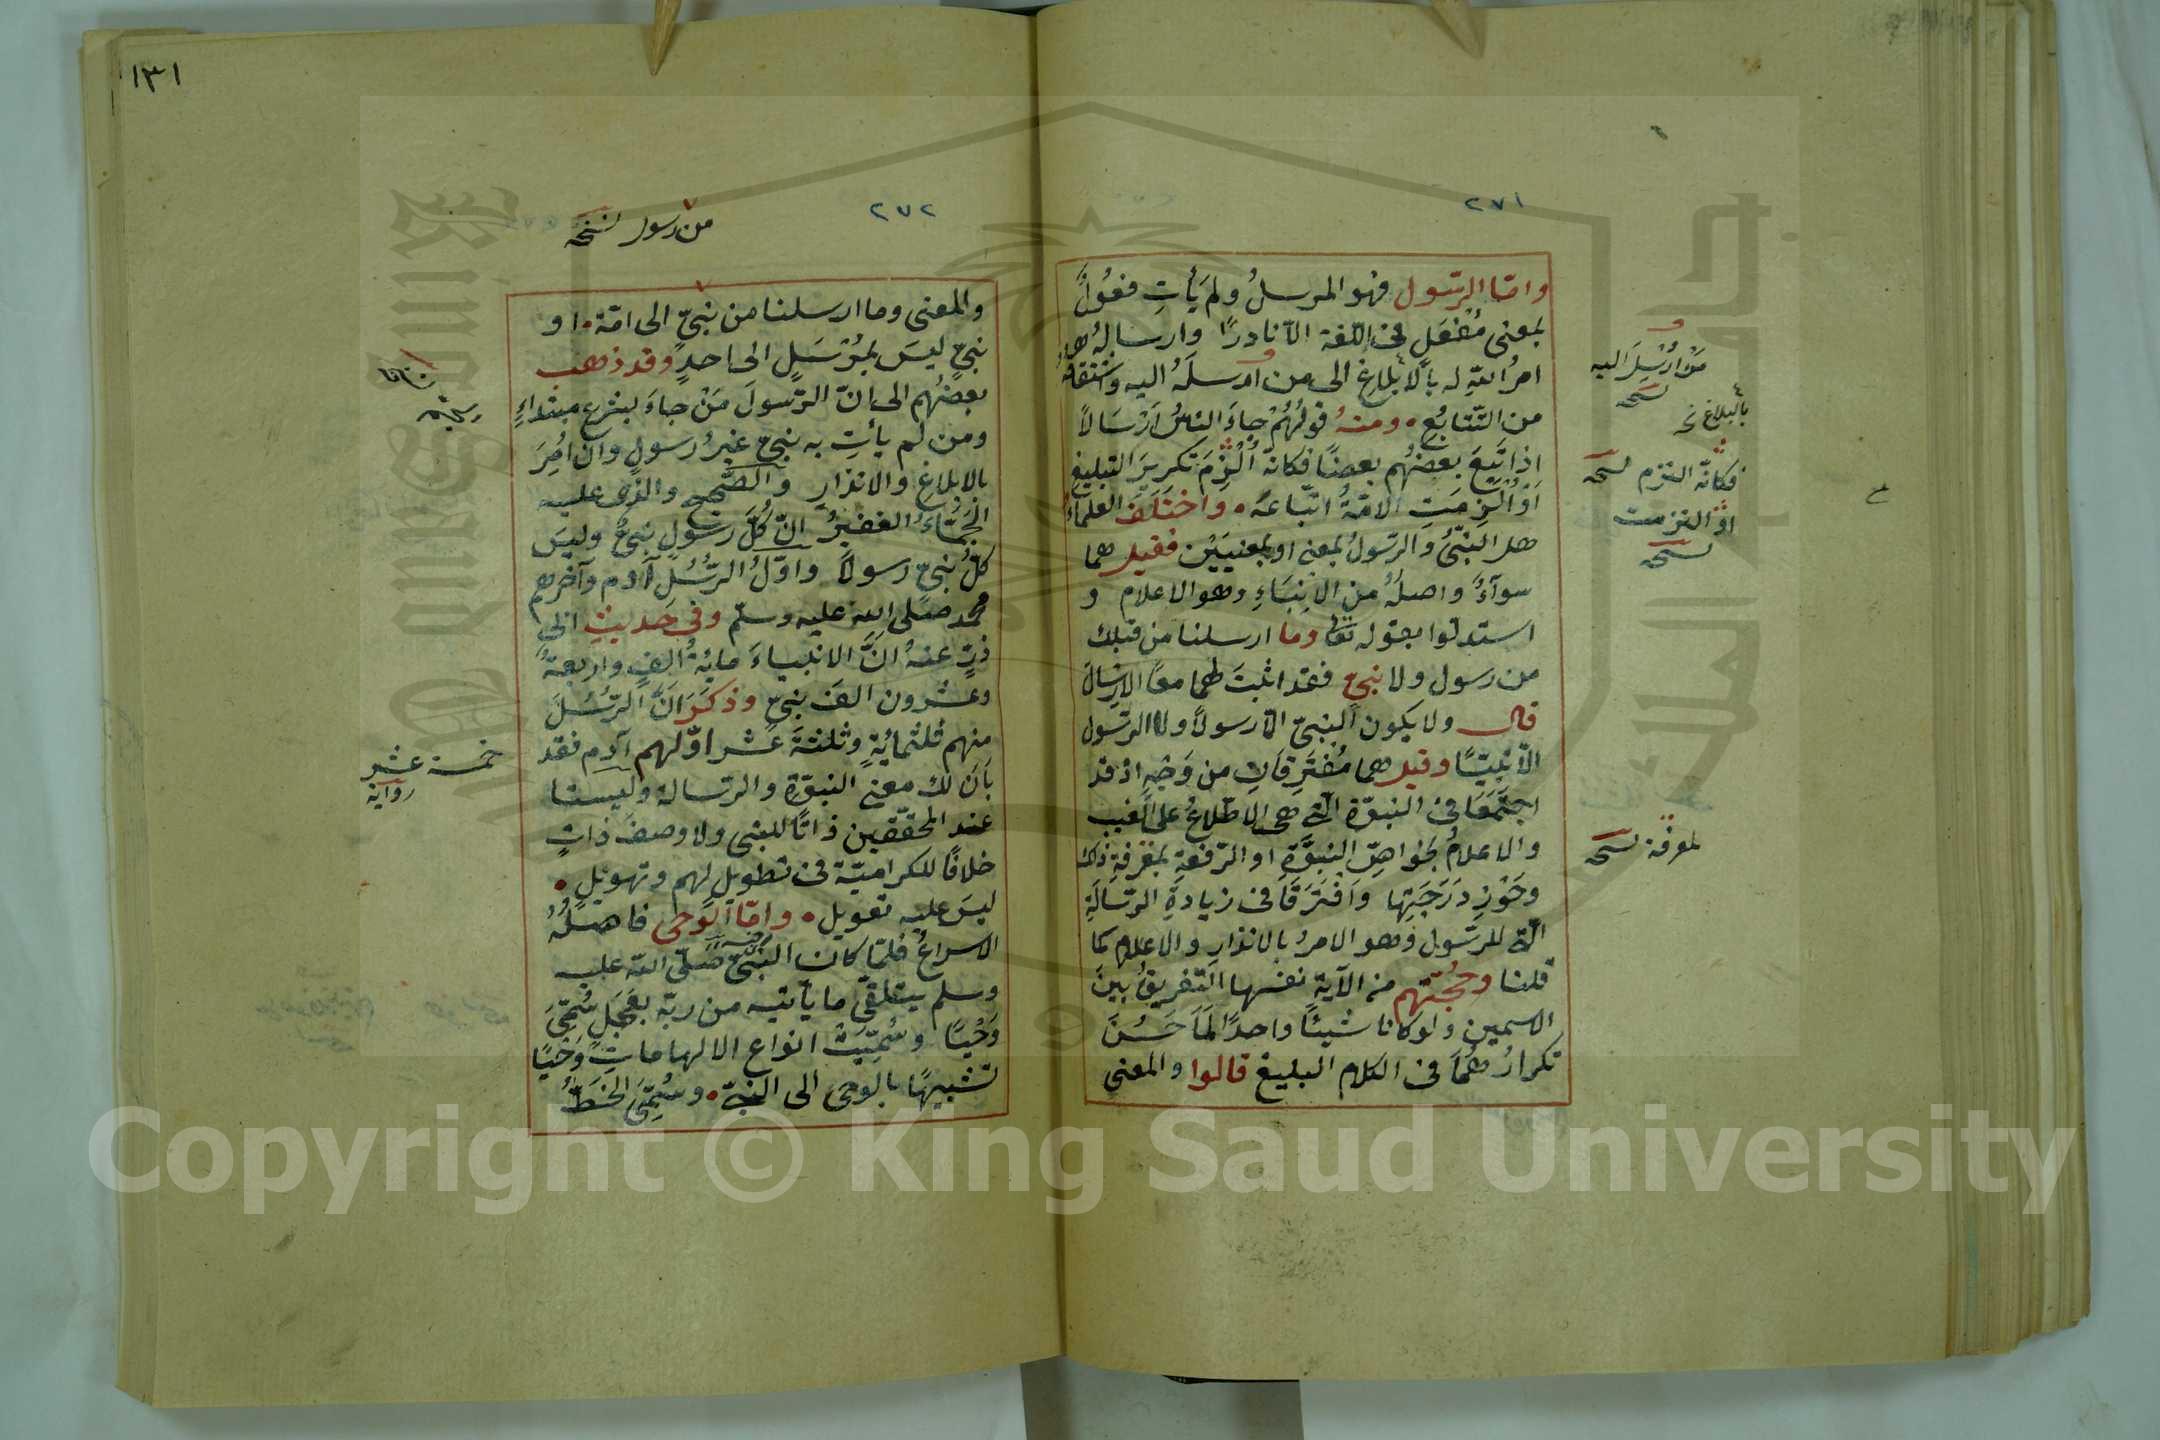 ١٣١
٢٧١
واما الرّسول فهو المرسلُ ولم يَأتِ فعُولٌ
بمعنى مُفْعَلٍ في اللّغة الّا نادرًا وارسالهُ هو
امرُ اللّهِ له بالابلاغ الى من ارسلَهُ اليه واشتقاقهُ
من التّتابُعِ ومنهُ قولُهُمْ جاءَ الناسُ اَرْسَالًا
اذا تَبِعَ بعضهُم بعضًا فكانهُ اُلْزِمَ تكريرَ التبليغ
اَوْ اُلْزِمَتِ الامّةُ اتّباعَهُ واختَلَفَ العلماءُ
هل النّبيُّ والرّسولُ بمعنى او بمعنيَيْن فقيل هما
سوآءٌ واصلُهُ من الاِنْبَاءِ وهو الاعلام و
استدلّوا بقوله تعا وما ارسلنا من قبلك
من رسول ولا نبيّ فقد اثبتَ لهما معًا الارسالَ
قال ولا يكون النبيّ الّا رسولًا ولا الرّسول
الّا نبيّا وقيل هما مُفْتَرِقَانِ من وَجْهٍ اذ قد
اجتَمَعَا في النبوّة الّتي هي الاطّلاعُ على الغيب
والاعلامُ بخواصّ النبوَّةِ او الرّفعةِ بمعْرفةِ ذلك
وحَوْزِ دَرَجَتِها وَافْتَرَقَا في زيادةِ الرّسَالَةِ
الّتي للرّسول وهو الامرُ بالانذارِ والاعلام كما
قلنا وحُجّتهم من الآيةِ نفسها التّفريقُ بينَ
الاسمين ولو كانا شيئًا واحدًا لَمَا حَسُنَ
تكرارُهُمَا في الكلام البليغ قالوا والمعنى
مَنْ اُرْسِلَ اليه
نسخه
بالبلاغ نخ
فكانّه التزم نسخه
او التزمت
نسخه
لمعرفة نسخه
٢٧٢
من رسول نسخه
والمعنى وما ارسلنا من نبيّ الى امّة او
نبيّ ليسَ بمُرْسَلٍ الى احدٍ وقد ذهب
بعضهُم الى انّ الرّسولَ مَنْ جاءَ بشرعٍ مبتداءٍ
ومن لم يأتِ به نبيّ غيرُ رسولٍ وان اُمِرَ
بالابلاغ والانذارِ والصّحيح والذي عليه
الجَمّاءُ الغفيرُ انّ كُلَّ رسولٍ نبيٌّ وليسَ
كلُّ نبيّ رسولًا واوّلُ الرّسُلِ آدم وآخرهم
محمد صَلى الله عليه وسلّم وفي حَديثِ ابي
ذرٍّ عنهُ انَّ الانبياءَ مائةُ الفٍ واربعةٌ
وعشرون الفَ نبيّ وذكَرَ اَنَّ الرّسُلَ
منهم ثلثمائةٍ وثلثةَ عَشَر اوّلهم آدم فقد
بَانَ لك معنى النبوّةِ والرّسالة وليستا
عند المحقّقين ذاتًا للنبي ولا وصفَ ذاتٍ
خلافًا للكراميّة في تطويلٍ لهم وتهويل
ليسَ عليه تعويل وامّا الوَحي فاصلُهُ
الاسراعُ فلمّا كان النّبيّ صَلّى اللّه عليه
وسلم يتلقّى ما يأتيه من ربّه بعَجَلٍ سُمّيَ
وَحْيًا وسُمّيَتْ انواع الالهاماتِ وَحْيًا
تشبيهًا بالوحَى الى النّبيّ وسُمِّيَ الخَطُّ
خمسة عشر
رواية
Copyright © King Saud University